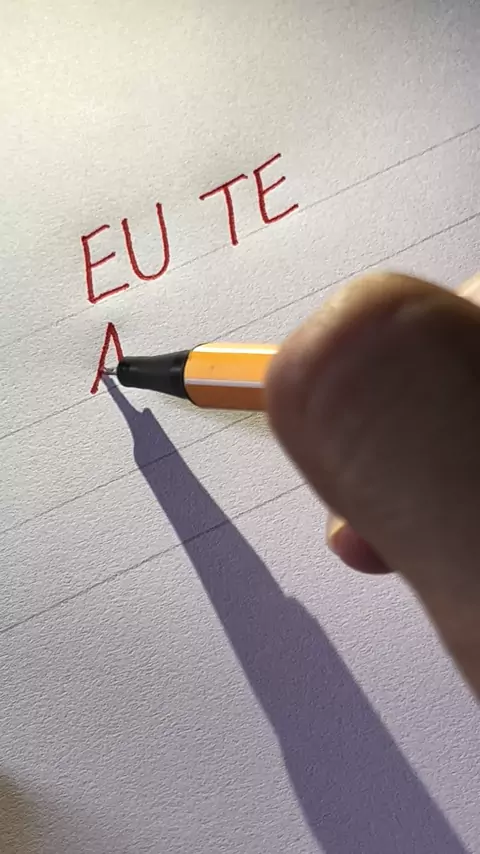 EU TE
A